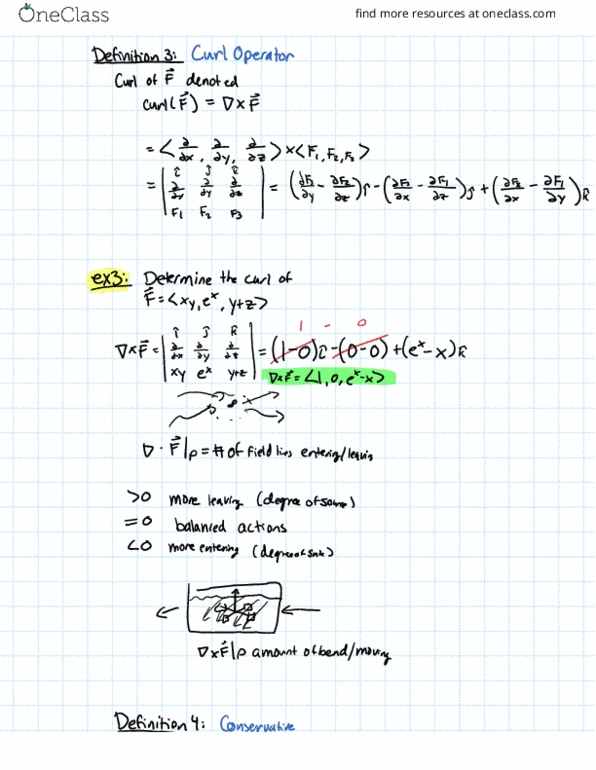 OneClass
find more resources at oneclass.com
Definition 3: Curl Operator
Curl of F⃗ denoted
curl(F⃗) = ∇×F⃗
= <∂/∂x, ∂/∂y, ∂/∂z> × <F₁, F₂, F₃>
= | î ĵ k̂ ; ∂/∂x ∂/∂y ∂/∂z ; F₁ F₂ F₃ | = (∂F₃/∂y - ∂F₂/∂z)î - (∂F₃/∂x - ∂F₁/∂z)ĵ + (∂F₂/∂x - ∂F₁/∂y)k̂
ex3: Determine the curl of
F⃗ = <xy, eˣ, y+z>
1 - 0
∇×F⃗ = | î ĵ k̂ ; ∂/∂x ∂/∂y ∂/∂z ; xy eˣ y+z | = (1-0)î - (0-0) + (eˣ-x)k̂
∇×F⃗ = <1, 0, eˣ-x>
∇ · F⃗|p = # of field lines entering/leaving
>0 more leaving (degree of source)
=0 balanced actions
<0 more entering (degree of sink)
∇×F⃗|p amount of bend/moving
Definition 4: Conservative